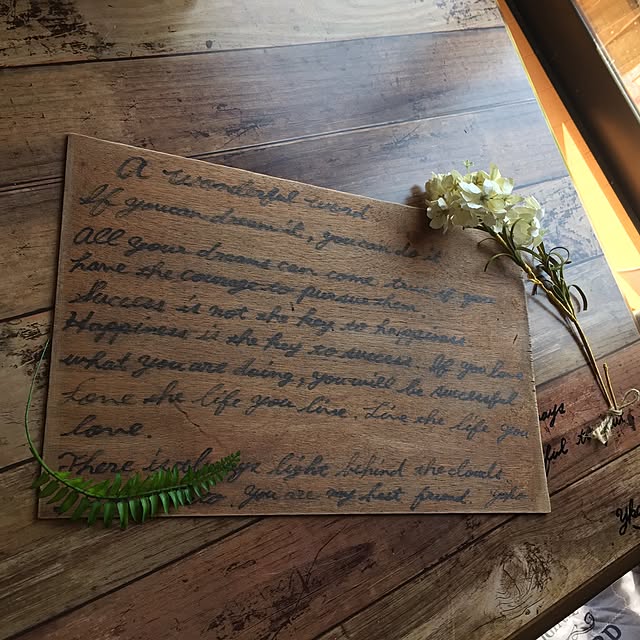 A wonderful word
If you can dream it, you can do it
All your dreams can come true if you
have the courage to pursue them.
Success is not the key to happiness
Happiness is the key to success. If you love
what you are doing, you will be successful
Love the life you live. Live the life you
love.
There is always light behind the clouds
You are my best friend.
ays